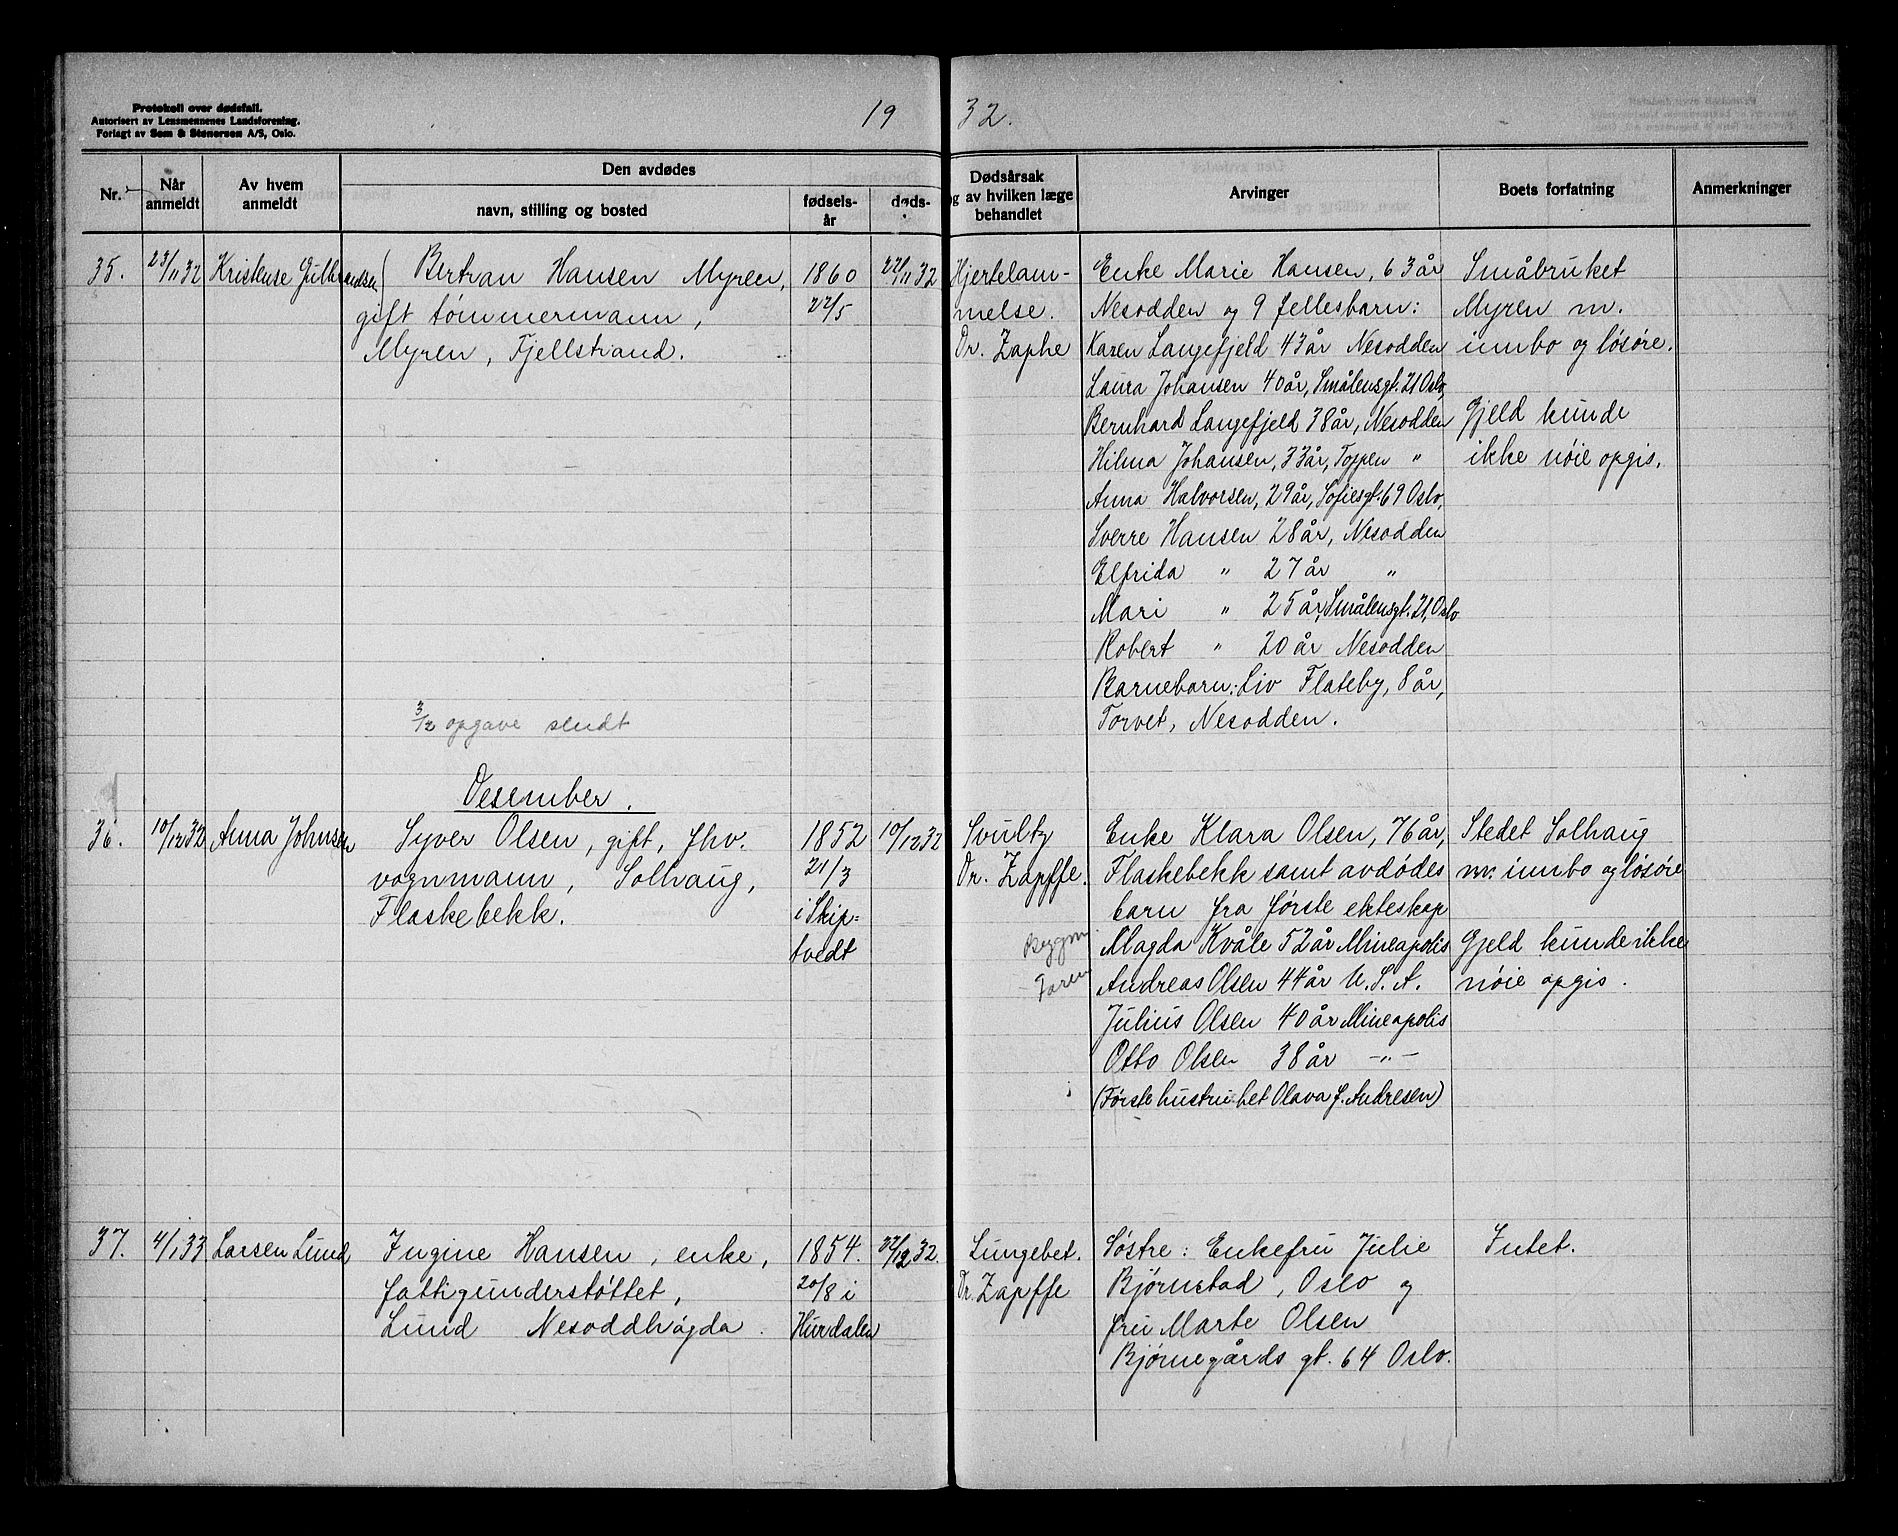 Protokoll over dødsfall.
Autorisert av Lensmennenes Landsforening.
Forlagt av Sem & Stenersen A/S, Oslo.
19 32.
Nr.
Når anmeldt
Av hvem anmeldt
Den avdødes
navn, stilling og bosted
fødselsår
døds-
Dødsårsak
og av hvilken læge
behandlet
Arvinger
Boets forfatning
Anmerkninger
35.
23/11 32
Kristense Gulbrandsen
Bertran Hansen Myren,
gift tømmermann,
Myren, Fjellstrand.
1860
22/5
22/11 32
Hjertelam-
melse.
Dr. Zaphe
Enke Marie Hansen, 63 år
Nesodden og 9 fellesbarn:
Karen Langefjeld 43 år Nesodden
Laura Johansen 40 år, Smålensgt. 21 Oslo,
Bernhard Langefjeld 38 år, Nesodden
Hilma Johansen, 33 år, Toppen "
Anna Halvorsen, 29 år, Sofiesgt. 69 Oslo,
Sverre Hansen 28 år, Nesodden
Elfrida " 27 år "
Mari " 25 år, Smålensgt. 21, Oslo
Robert " 20 år Nesodden
Barnebarn: Liv Flateby, 8 år,
Torvet, Nesodden.
Småbruket
Myren m.
innbo og løsøre.
Gjeld kunde
ikke nøie opgis.
3/12 opgave sendt
Desember.
36.
10/12 32
Anna Johnsen
Syver Olsen, gift, fhv.
vognmann, Solhaug,
Flaskebekk.
1852
21/3
i Skip=
tvedt
10/12 32
Svulty
Dr. Zapffe.
Bygm.
Toren
Enke Klara Olsen, 76 år,
Flaskebekk samt avdødes
barn fra første ekteskap
Magda Kvåle 52 år Mineapolis
Andreas Olsen 44 år U.S.A.
Julius Olsen 40 år Mineapolis
Otto Olsen 38 år -"-
(Første hustru het Olava f. Andresen)
Stedet Solhaug
m. innbo og løsøre
Gjeld kunde ikke
nøie opgis.
37.
4/1 33
Larsen Lund
Ingine Hansen, enke,
fattigunderstøttet,
Lund Nesoddhøgda.
1854.
20/8 i
Hurdalen
/12 32.
Lungebet.
Dr. Zapffe
Søstre: Enkefru Julie
Bjørnstad, Oslo og
fru Marte Olsen
Bjørnegårds gt. 64 Oslo.
Intet.